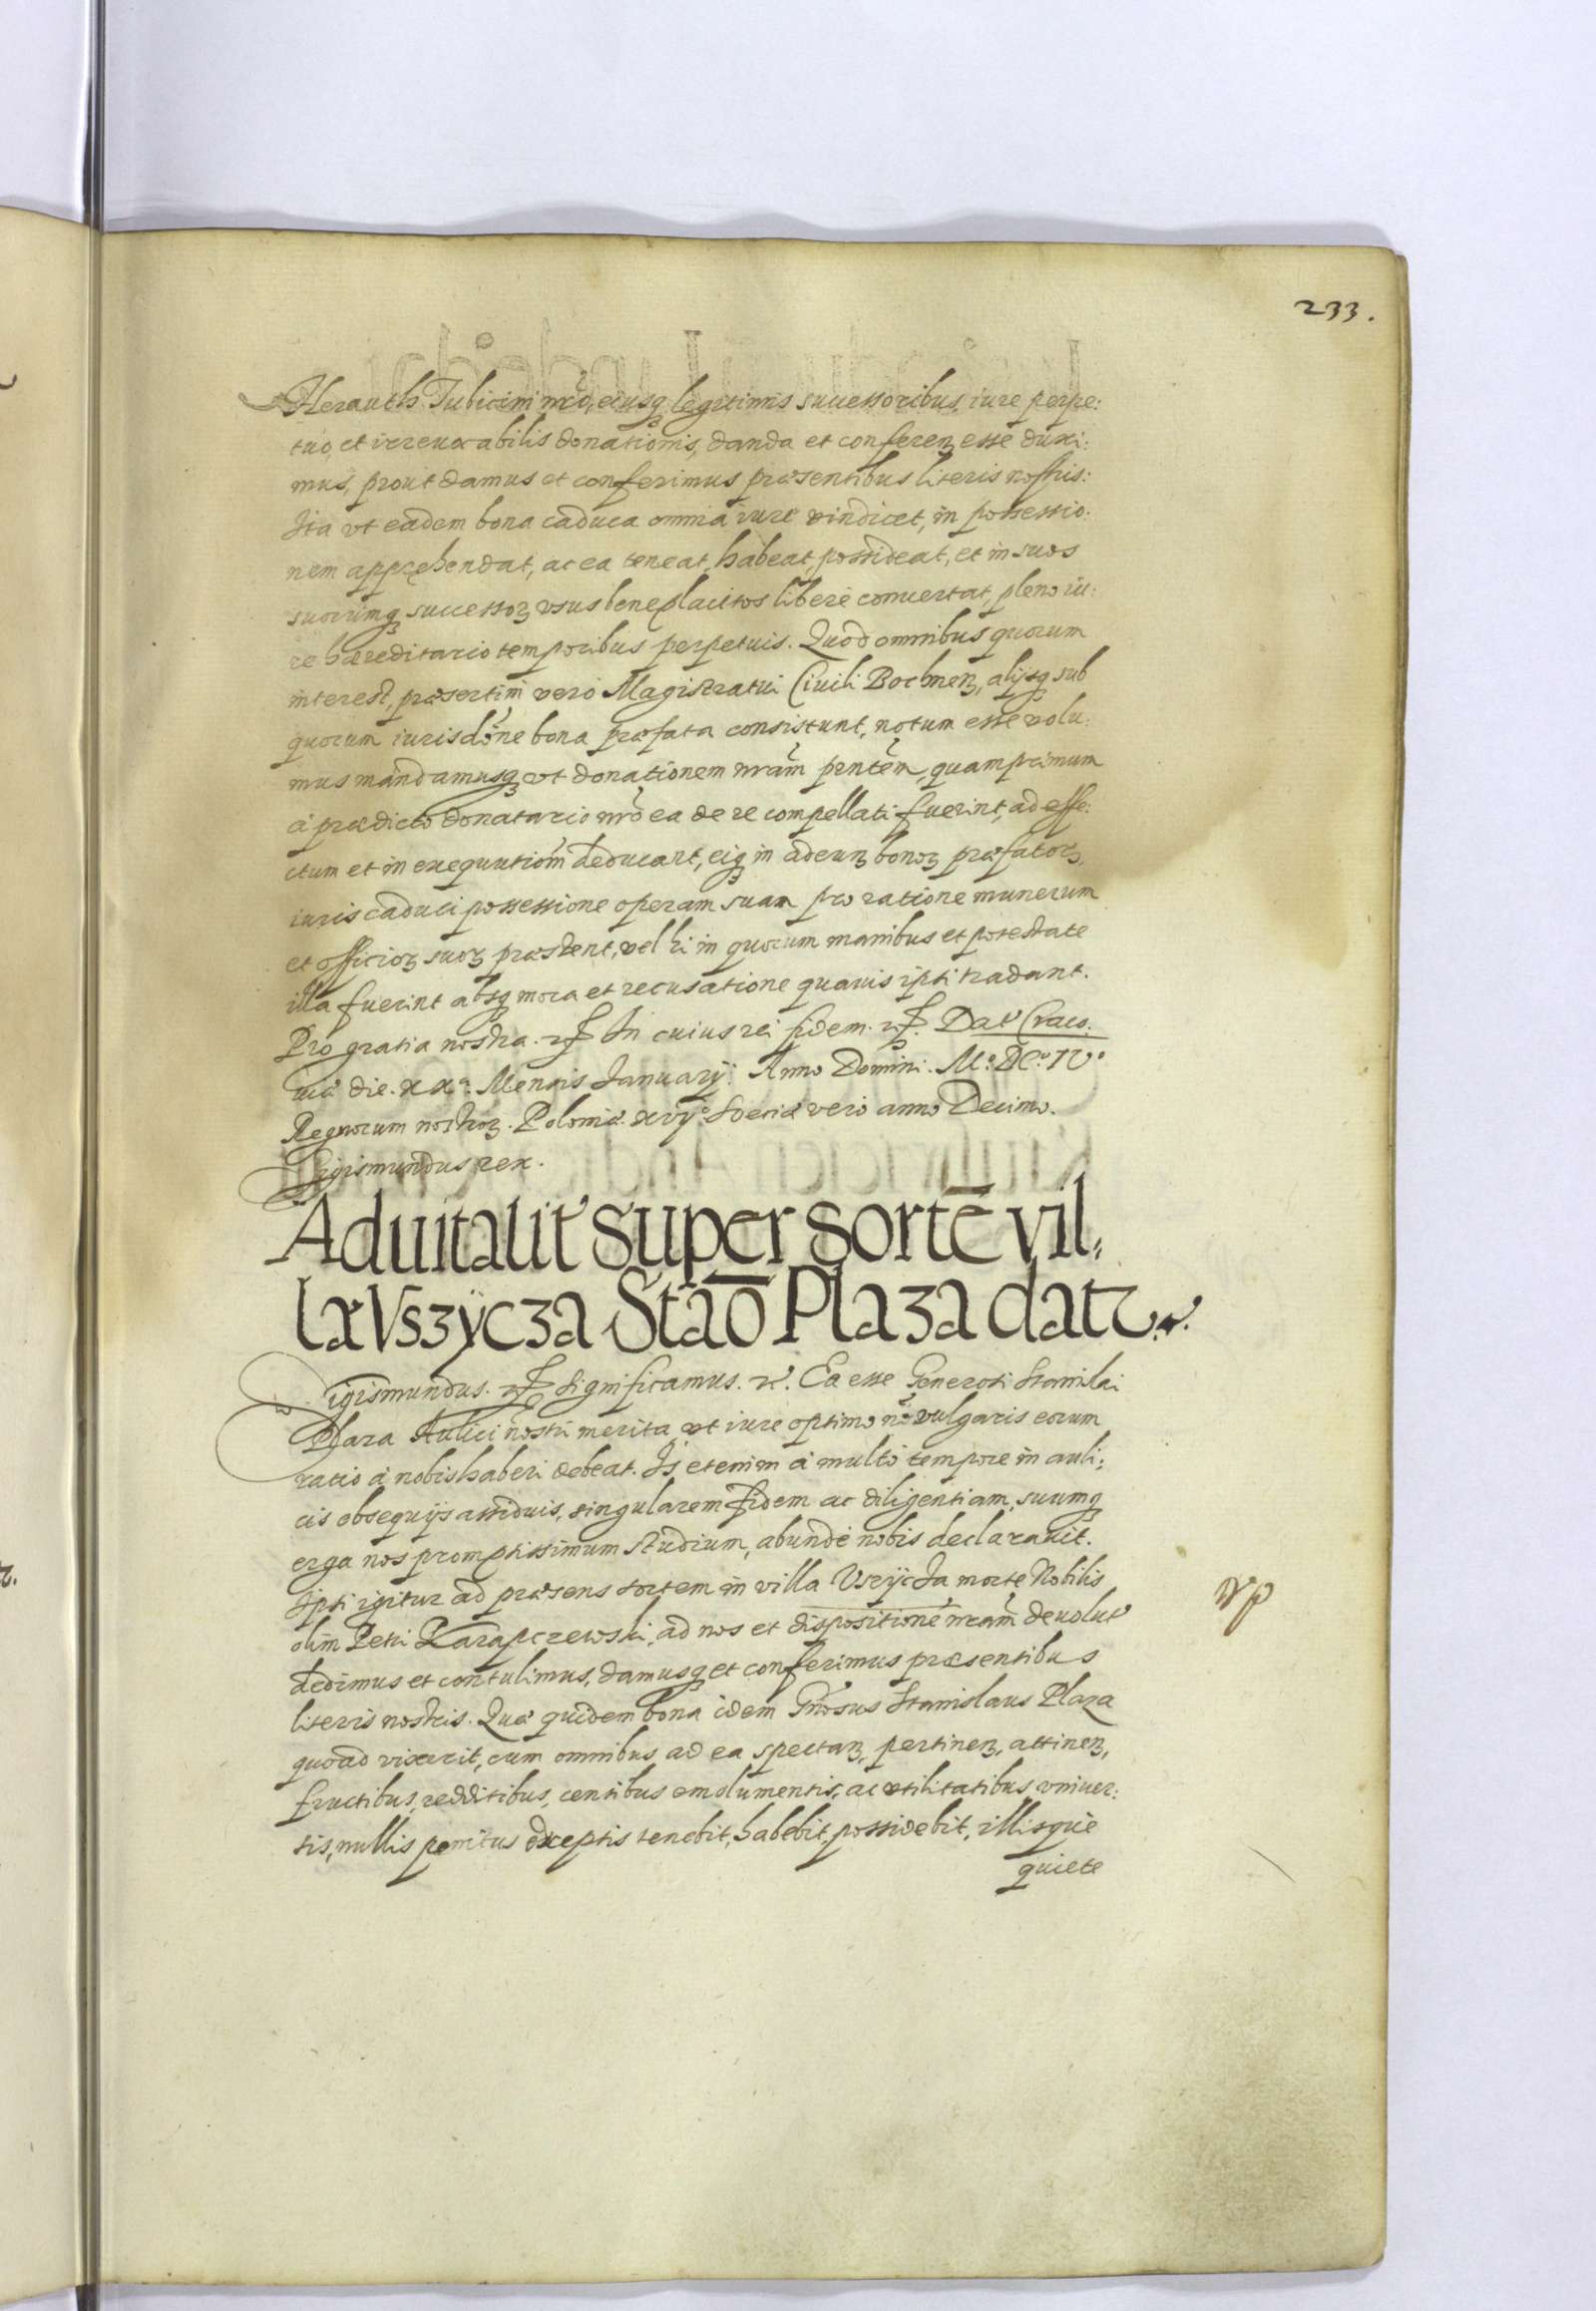 233.
Herauth Tubicini nrõ, eiusq legitimis successoribus, iure perpe:
tuo, et irreuocabilis donationis, danda et conferenꝫ esse duxi:
mus, prout damus et conferimus præsentibus literis nostris:
Ita vt eadem bona caduca omnia iure vindicet, in possessio:
nem apprehendat, ac ea teneat, habeat, possideat, et in suos
suorumqꝫ successorꝫ vsus beneplacitos liberè conuertat, pleno iu:
re hæreditario temporibus perpetuis. Quod omnibus quorum
interest, præsertim vero Magistratui Ciuili Bochnenꝫ, alijsqꝫ sub
quorum iurisdõne bona præfata consistunt, notum esse volu:
mus mandamusqꝫ vt donationem nram̃ pñtem, quamprimum
à prædicto donatario nrõ ea de re compellati fuerint, ad effe:
ctum et in exequutiom̃ deducant, eiqꝫ in adeunꝫ bonorꝫ præfatorꝫ,
iuris caduci possessione operam suam pro ratione munerum
et officiorꝫ suorꝫ præstent, vel hi in quorum manibus et potestate
illa fuerint absqꝫ mora et recusatione quauis ipsi tradant.
Pro gratia nostra. In cuius rei fidem. Dat' Craco:
uiæ die. xxa. Mensis January. Anno Domini. Mo. DCo. IVo
Regnorum nostrorꝫ. Poloniæ xvijo Sueciæ vero anno Decimo.
Sigismundus rex.
Aduitalit' super sortē vil,
læ Vszÿcza Stãõ Plaza datz.
Sigismundus. Significamus. Ea esse Generosi Stanislai
Plaza Aulici nostri merita, vt iure optimo nõ vulgaris eorum
ratio à nobis haberi debeat. Is etenim à multo tempore in auli:
cis obsequijs assiduis, singularem fidem ac diligentiam, suumqꝫ
erga nos promptissimum studium, abundè nobis declarauit.
Ipsi igitur ad præsens sortem in villa Vszÿcza morte Nobilis
olim Petri Karapczewski, ad nos et dispositionē nram̃ deuolut'
dedimus et contulimus, damusqꝫ et conferimus præsentibus
literis nostris. Quæ quidem bona idem Gñosus Stanislaus Plaza
quoad vixerit, cum omnibus ad ea spectanꝫ, pertinenꝫ, attinenꝫ,
fructibus, redditibus, censibus emolumentis, ac vtilitatibus vniuer:
sis, nullis penitus exceptis tenebit, habebit, possidebit, illisque
quiete